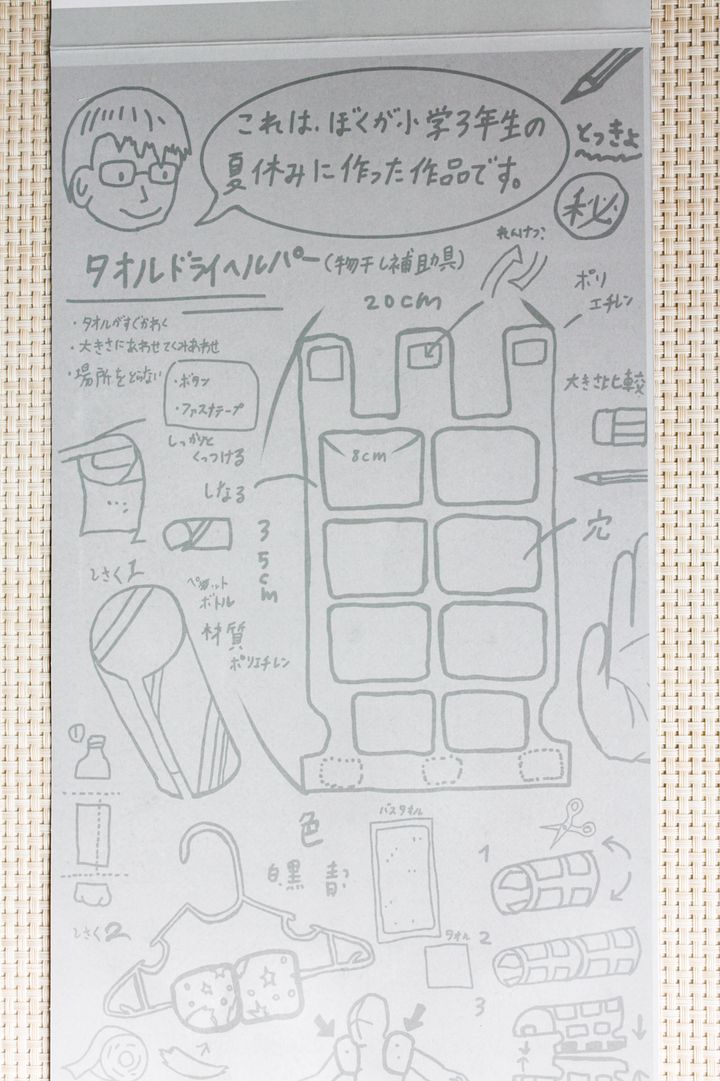 これは、ぼくが小学3年生の
夏休みに作った作品です。
とっきょ
秘
れんけつ?
タオルドライヘルパー(物干し補助具)
20cm
ポリ
エチレン
・タオルがすぐかわく
・大きさにあわせてくみあわせ
・場所をとらない
・ボタン
・ファスナテープ
しっかりと
くっつける
大きさ比較
8cm
しなる
穴
35cm
しさく1
ペットボトル
材質
ポリエチレン
①
色
白黒青?
バスタオル
タオル
しさく2
1
2
3